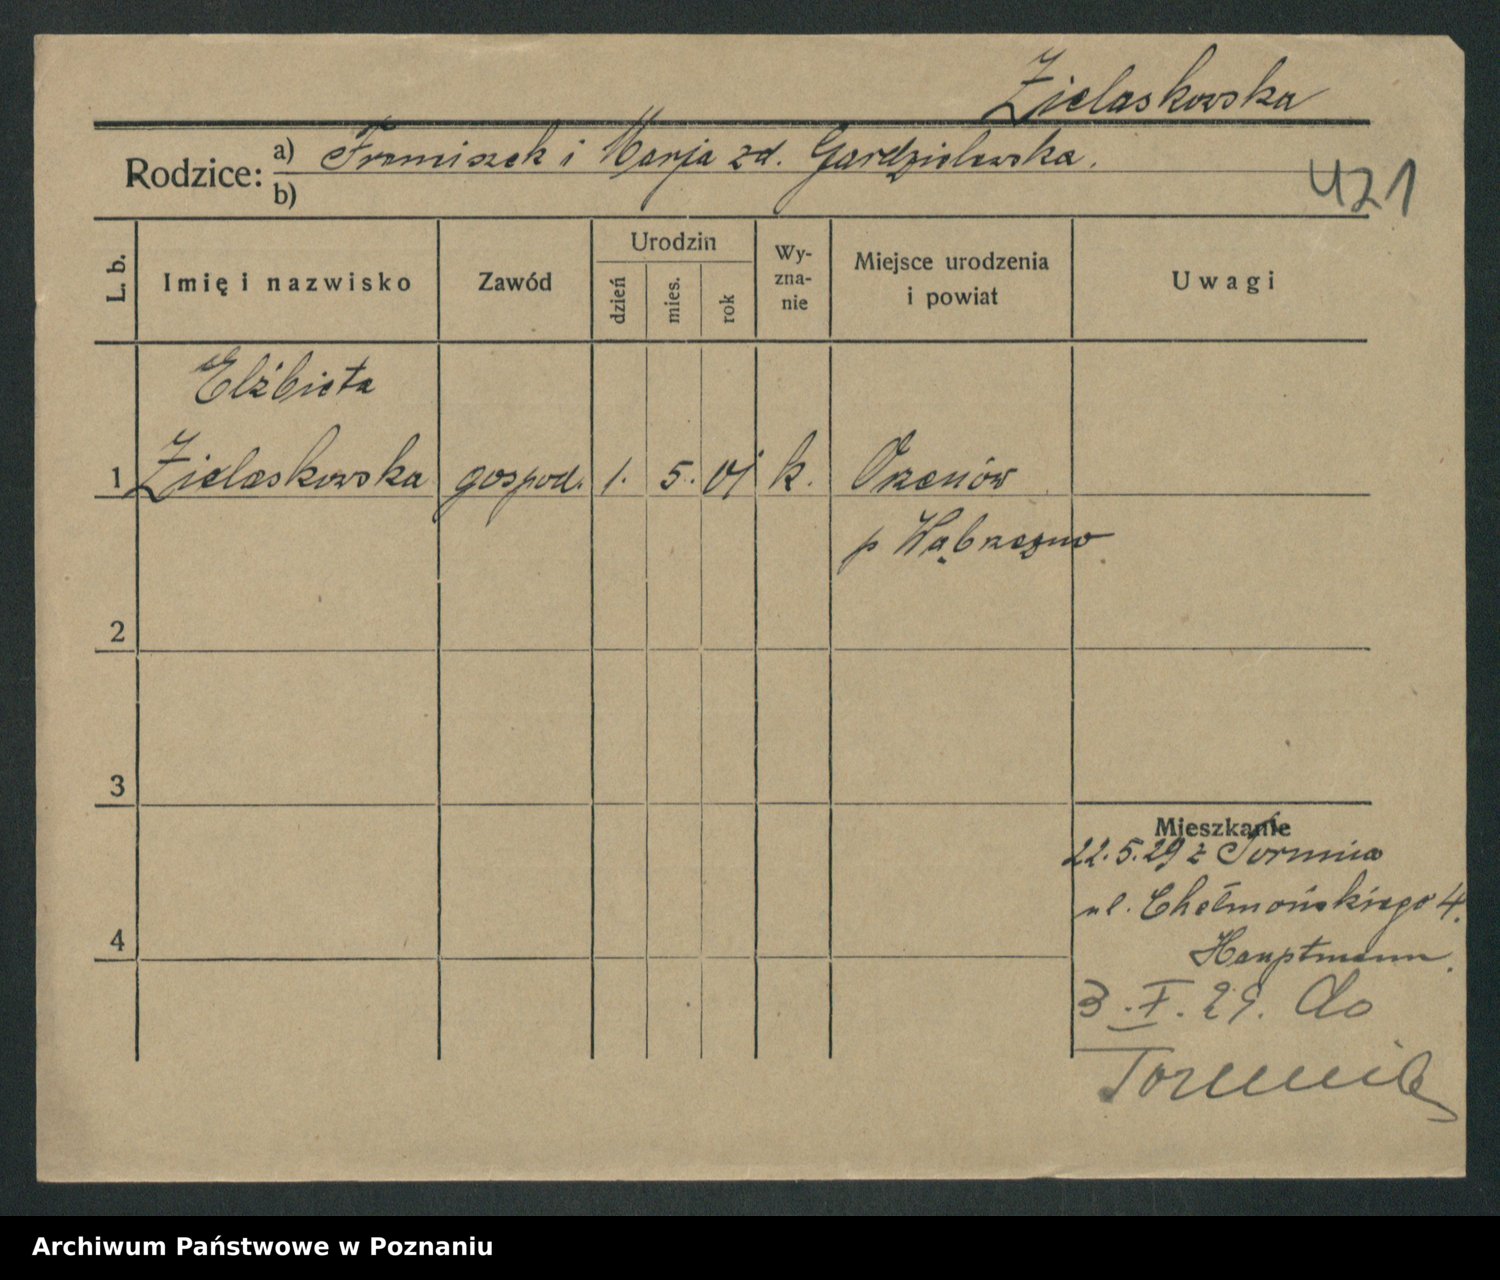 Zielaskowska
Rodzice: a) Franciszek i Marja zd. Gardzielewska.
b)
421
L. b.
Imię i nazwisko
Zawód
Urodzin
dzień
mies.
rok
Wy-
zna-
nie
Miejsce urodzenia
i powiat
Uwagi
Elżbieta
1 Zielaskowska gospod. 1. 5. 01 k.
p Wąbrzeźno
2
3
4
Mieszkanie
22.5.29 z Torunia
ul. Chełmońskiego 4.
Hauptmann.
3.X.29. do
Torunia
Archiwum Państwowe w Poznaniu